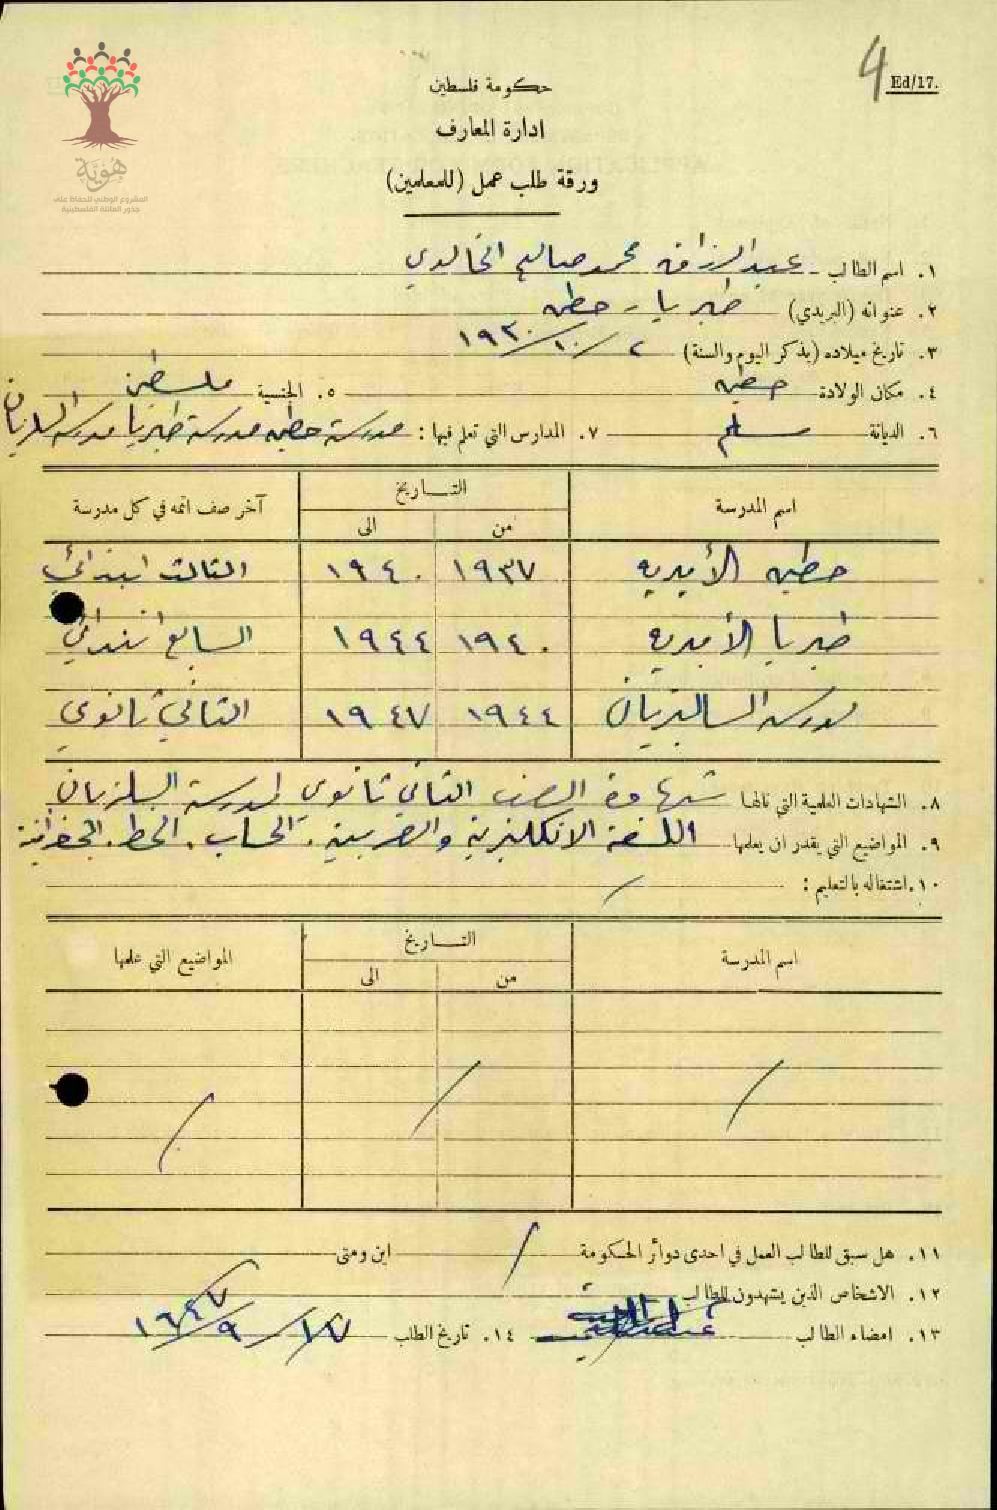 4 Ed/17.
هُوِيَّة
المشروع الوطني للحفاظ على
جذور العائلة الفلسطينية
حكومة فلسطين
ادارة المعارف
ورقة طلب عمل (للمعلمين)
١. اسم الطالب عبد الرزاق محمد صالح الخالدي
٢. عنوانه (البريدي) طبريا - حطين
٣. تاريخ ميلاده (بذكر اليوم والسنة) ٢/١٠/١٩٣٠
٤. مكان الولادة حطين ٥. الجنسية فلسطين
٦. الديانة مسلم ٧. المدارس التي تعلم فيها: مدرسة حطين مدرسة طبريا مدرسة
اسم المدرسة التاريخ آخر صف اتمه في كل مدرسة
من الى
حطين الأميرية ١٩٣٧ ١٩٤٠ الثالث ابتدائي
طبريا الأميرية ١٩٤٠ ١٩٤٤ السابع ابتدائي
مدرسة الساليزيان ١٩٤٤ ١٩٤٧ الثاني ثانوي
٨. الشهادات العلمية التي نالها شهادة الصف الثاني ثانوي لمدرسة السلزيان
٩. المواضيع التي يقدر ان يعلمها اللغة الانكليزية والعربية. الحساب. الخط. الجغرافية
١٠. اشتغاله بالتعليم: /
اسم المدرسة التاريخ المواضيع التي علمها
من الى
/ / /
١١. هل سبق للطالب العمل في احدى دوائر الحكومة / اين ومتى
١٢. الاشخاص الذين يشهدون للطالب
١٣. امضاء الطالب ١٤. تاريخ الطلب ١٧/٩/١٩٤٧